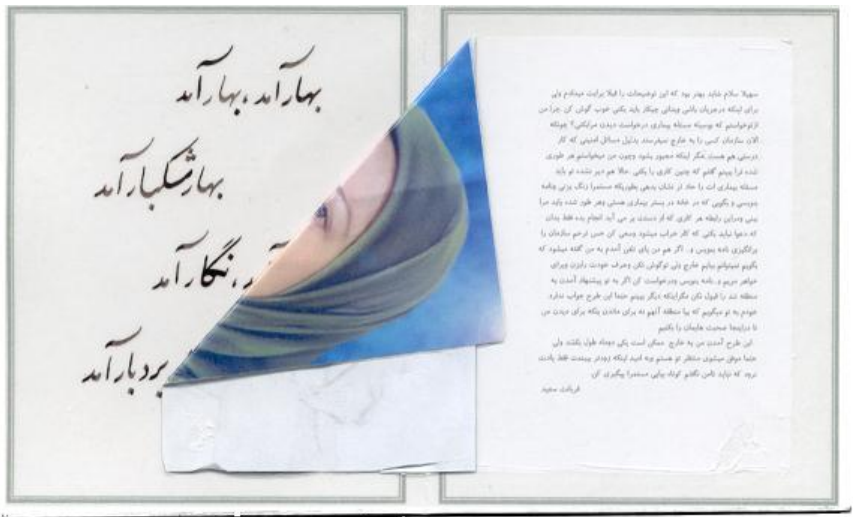 بهار آمد، بهار آمد
بهار مشکبار آمد
نگار آمد
بردبار آمد
سهیلا سلام شاید بهتر بود که این توضیحات را قبلا برایت میدادم ولی
برای اینکه درجریان باشی وبدانی چیکار باید بکنی خوب گوش کن چرا من
ازتوخواستم که بوسیله مسئله بیماری درخواست دیدن مرابکنی؟ چونکه
الان سازمان کسی را به خارج نمیفرستد بدلیل مسائل امنیتی که کار
درستی هم هست مگر اینکه مجبور بشود وچون من میخواستم هر طوری
شده ترا ببینم گفتم که چنین کاری را بکنی حالا هم دیر نشده تو باید
مسئله بیماری ات را حاد تر نشان بدهی بطوریکه مستمرا زنگ بزنی ونامه
بنویسی و بگویی که در خانه در بستر بیماری هستی وهر طور شده باید مرا
ببینی ودراین رابطه هر کاری که از دستت بر می آید انجام بده فقط بدان
که دعوا نباید بکنی که کار خراب میشود وسعی کن حس ترحم سازمان را
برانگیزی نامه بنویس و . اگر هم من پای تلفن آمدم به من گفته میشود که
بگویم نمیتوانم بیایم خارج ولی توگوش نکن وحرف خودت رابزن وبرای
خواهر مریم و نامه بنویس ودرخواست کن اگر به تو پیشنهاد آمدن به
منطقه شد را قبول نکن مگراینکه دیگر ببینم حتما این طرح جواب ندارد
خودم به تو میگویم که بیا منطقه آنهم نه برای ماندن بلکه برای دیدن من
تا دراینجا صحبت هایمان را بکنیم
این طرح آمدن من به خارج ممکن است یکی دوماه طول بکشد ولی
حتما موفق میشوی منتظر تو هستم وبه امید اینکه زودتر ببینمت فقط یادت
نرود که نباید تلفن کوتاه بیایی مستمرا پیگیری کن
قربانت سعید